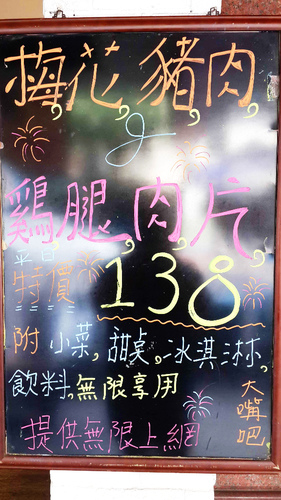 梅花豬肉,
&
鷄腿肉片,
平日
特價 138
附 小菜,甜桌。冰淇淋,
飲料,無限享用
大嘴吧
提供無限上網